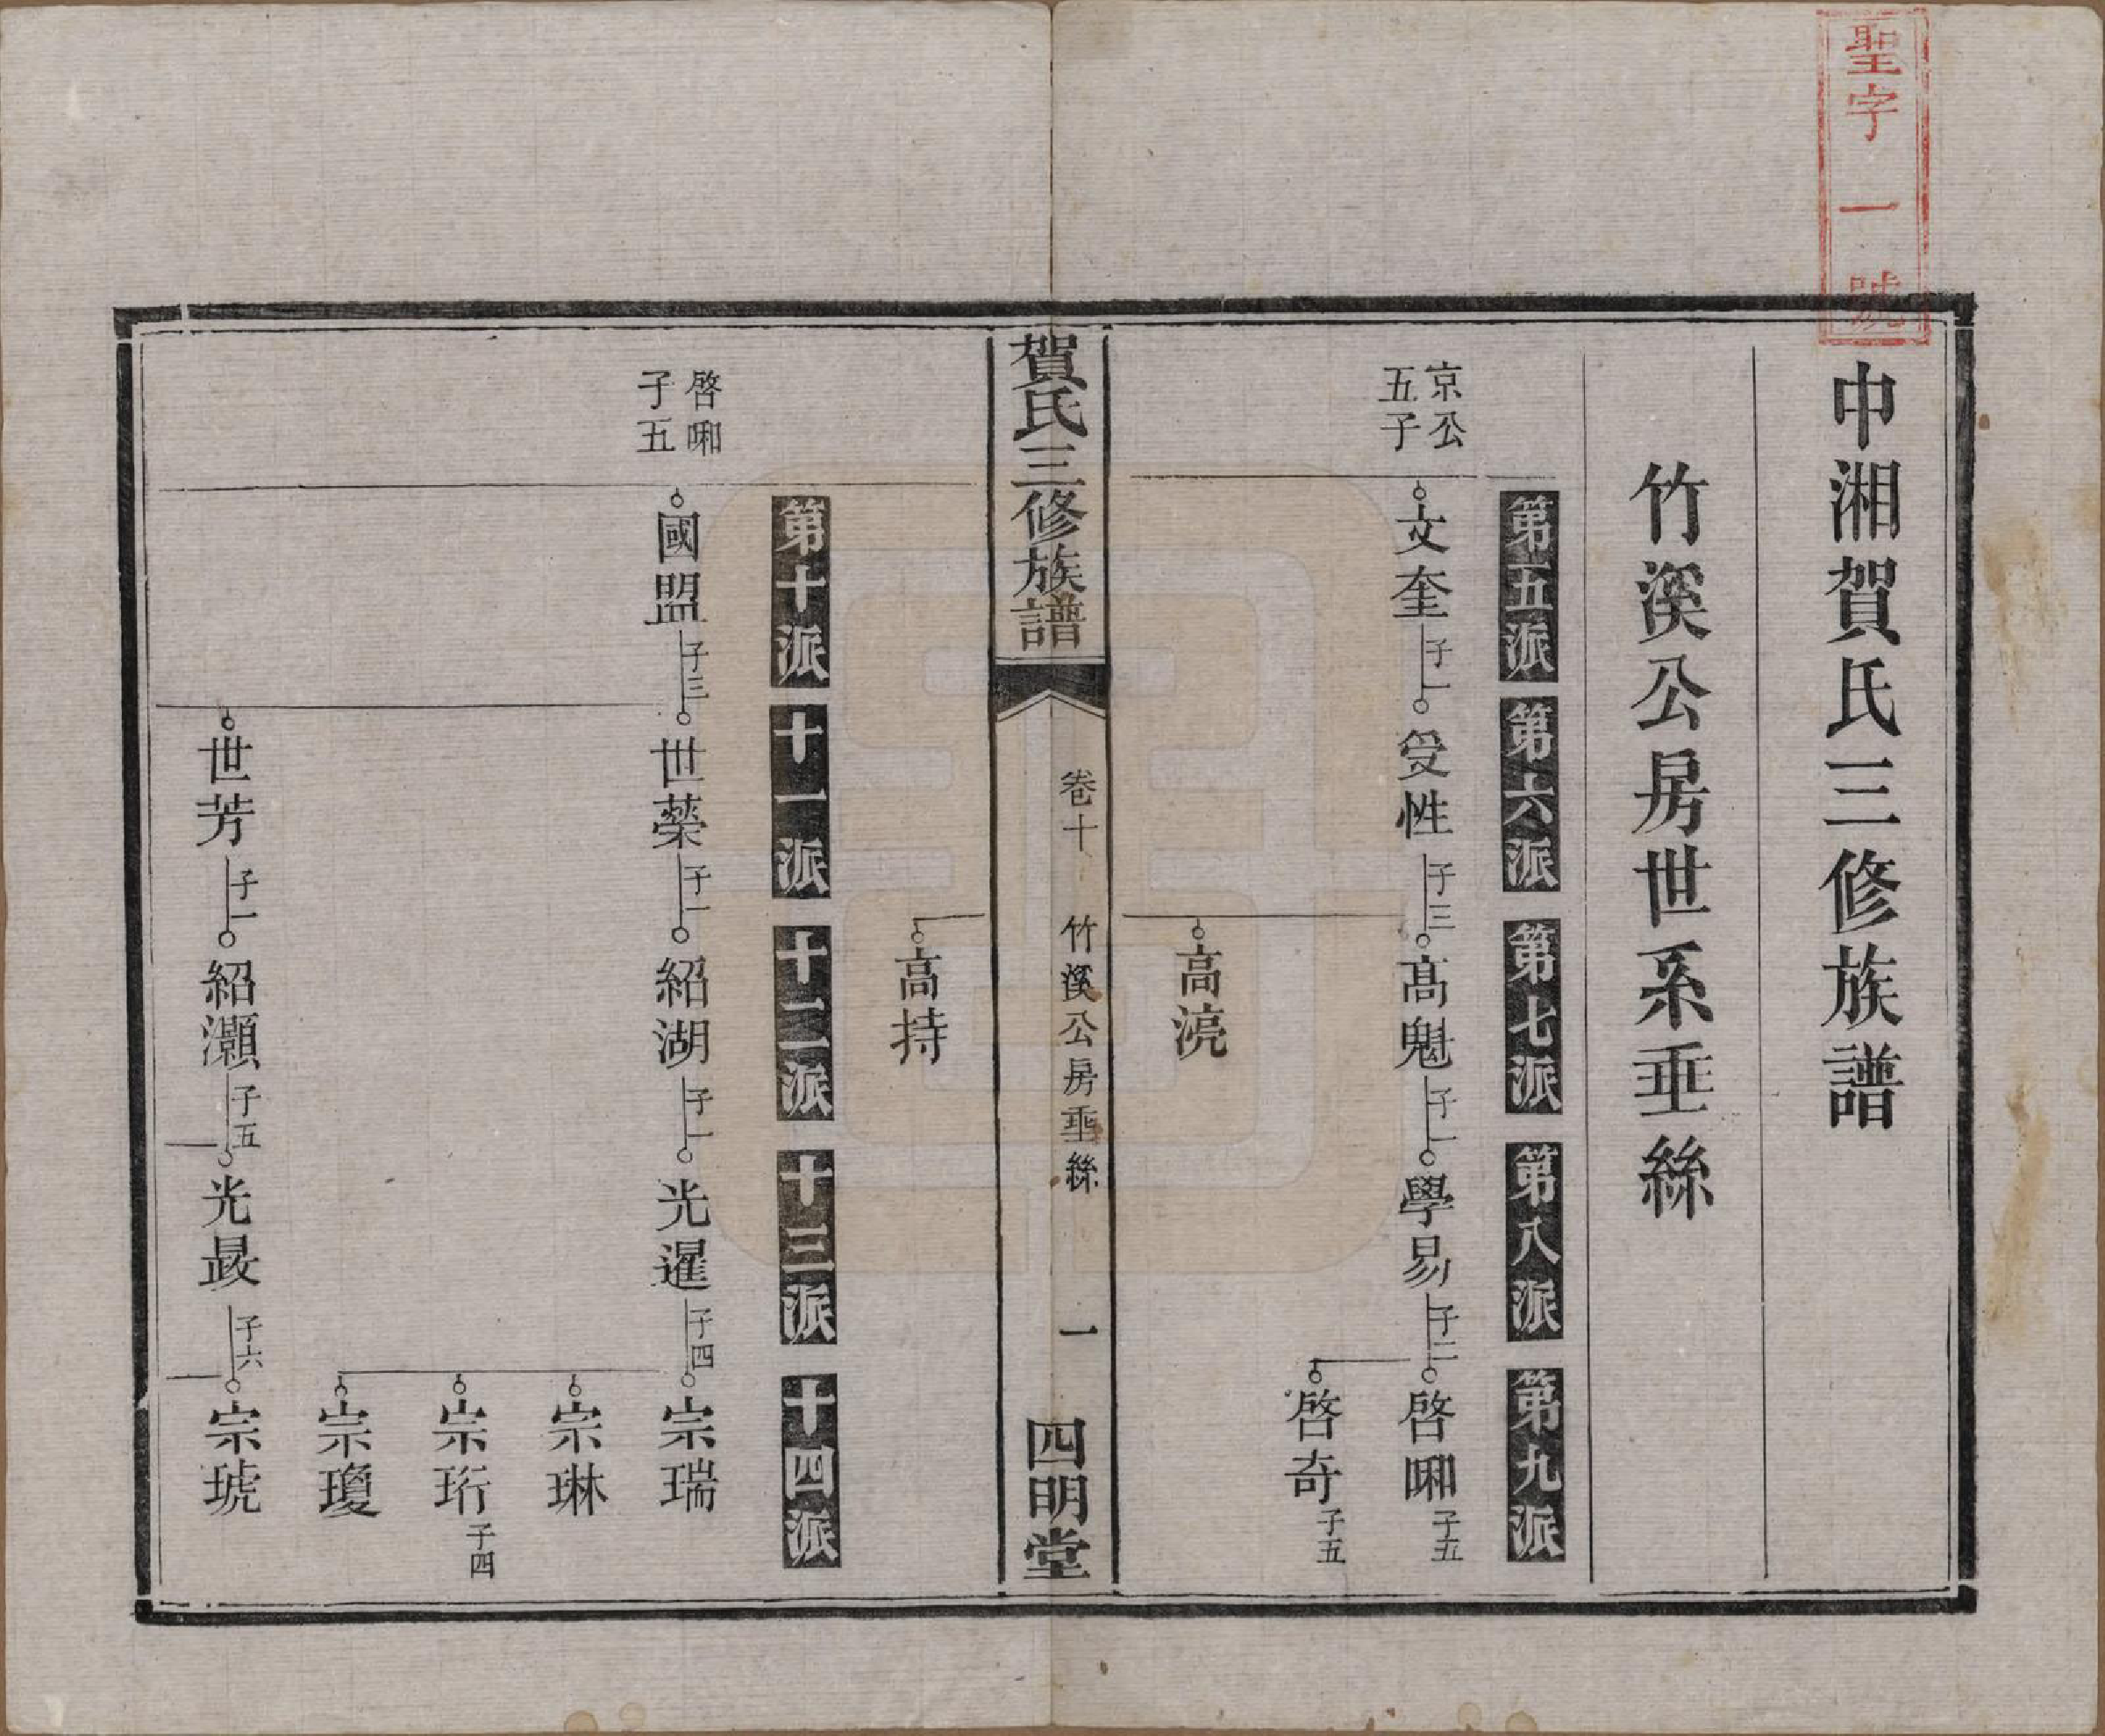 聖字一號
中湘賀氏三修族譜
竹溪公房世系垂絲
第五派
第六派
第七派
第八派
第九派
京公
五子
文奎
子一
受性
子三
高魁
子一
學易
子二
啓㖿
子五
啓奇
子五
高湸
賀氏三修族譜
卷十
竹溪公房垂絲
一
四明堂
高持
第十派
十一派
十二派
十三派
十四派
啓㖿
子五
國盟
子三
世榮
子一
紹湖
子一
光暹
子四
宗瑞
宗琳
宗珩
子四
宗瓊
世芳
子一
紹灝
子五
光晸
子六
宗琥